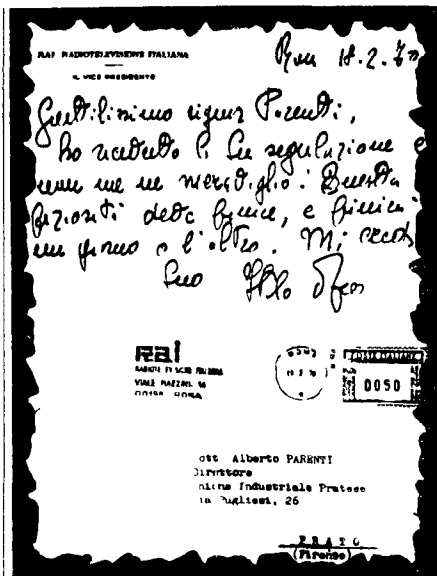 RAI RADIOTELEVISIONE ITALIANA
IL VICE PRESIDENTE
Roma 18.2.70
Gentilissimo signor Parenti,
ho ricevuto la Sua segnalazione e
non me ne meraviglio. Questa
faziosità deve finire, e finirà
un giorno o l'altro. Mi creda
Suo Italo de Feo
RAI
VIALE MAZZINI, 14
ROMA
ROMA
POSTE ITALIANE
0050
ott Alberto PARENTI
Direttore
nione Industriale Pratese
ia Pugliesi, 26
PRATO
(Firenze)